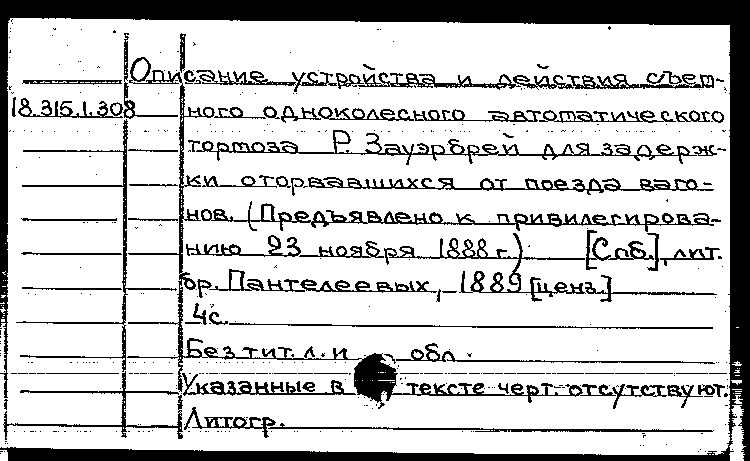 Описание устройства и действия съем-
18.315.1.308 ного одноколесного автоматического
тормоза Р. Зауэрбрей для задерж-
ки оторвавшихся от поезда ваго-
нов. (Предъявлено к привилегирова-
нию 23 ноября 1888 г.) [Спб.], лит.
бр. Пантелеевых, 1889 [ценз.]
4с.
Без тит. л. и обл.
Указанные в тексте черт. отсутствуют.
Литогр.